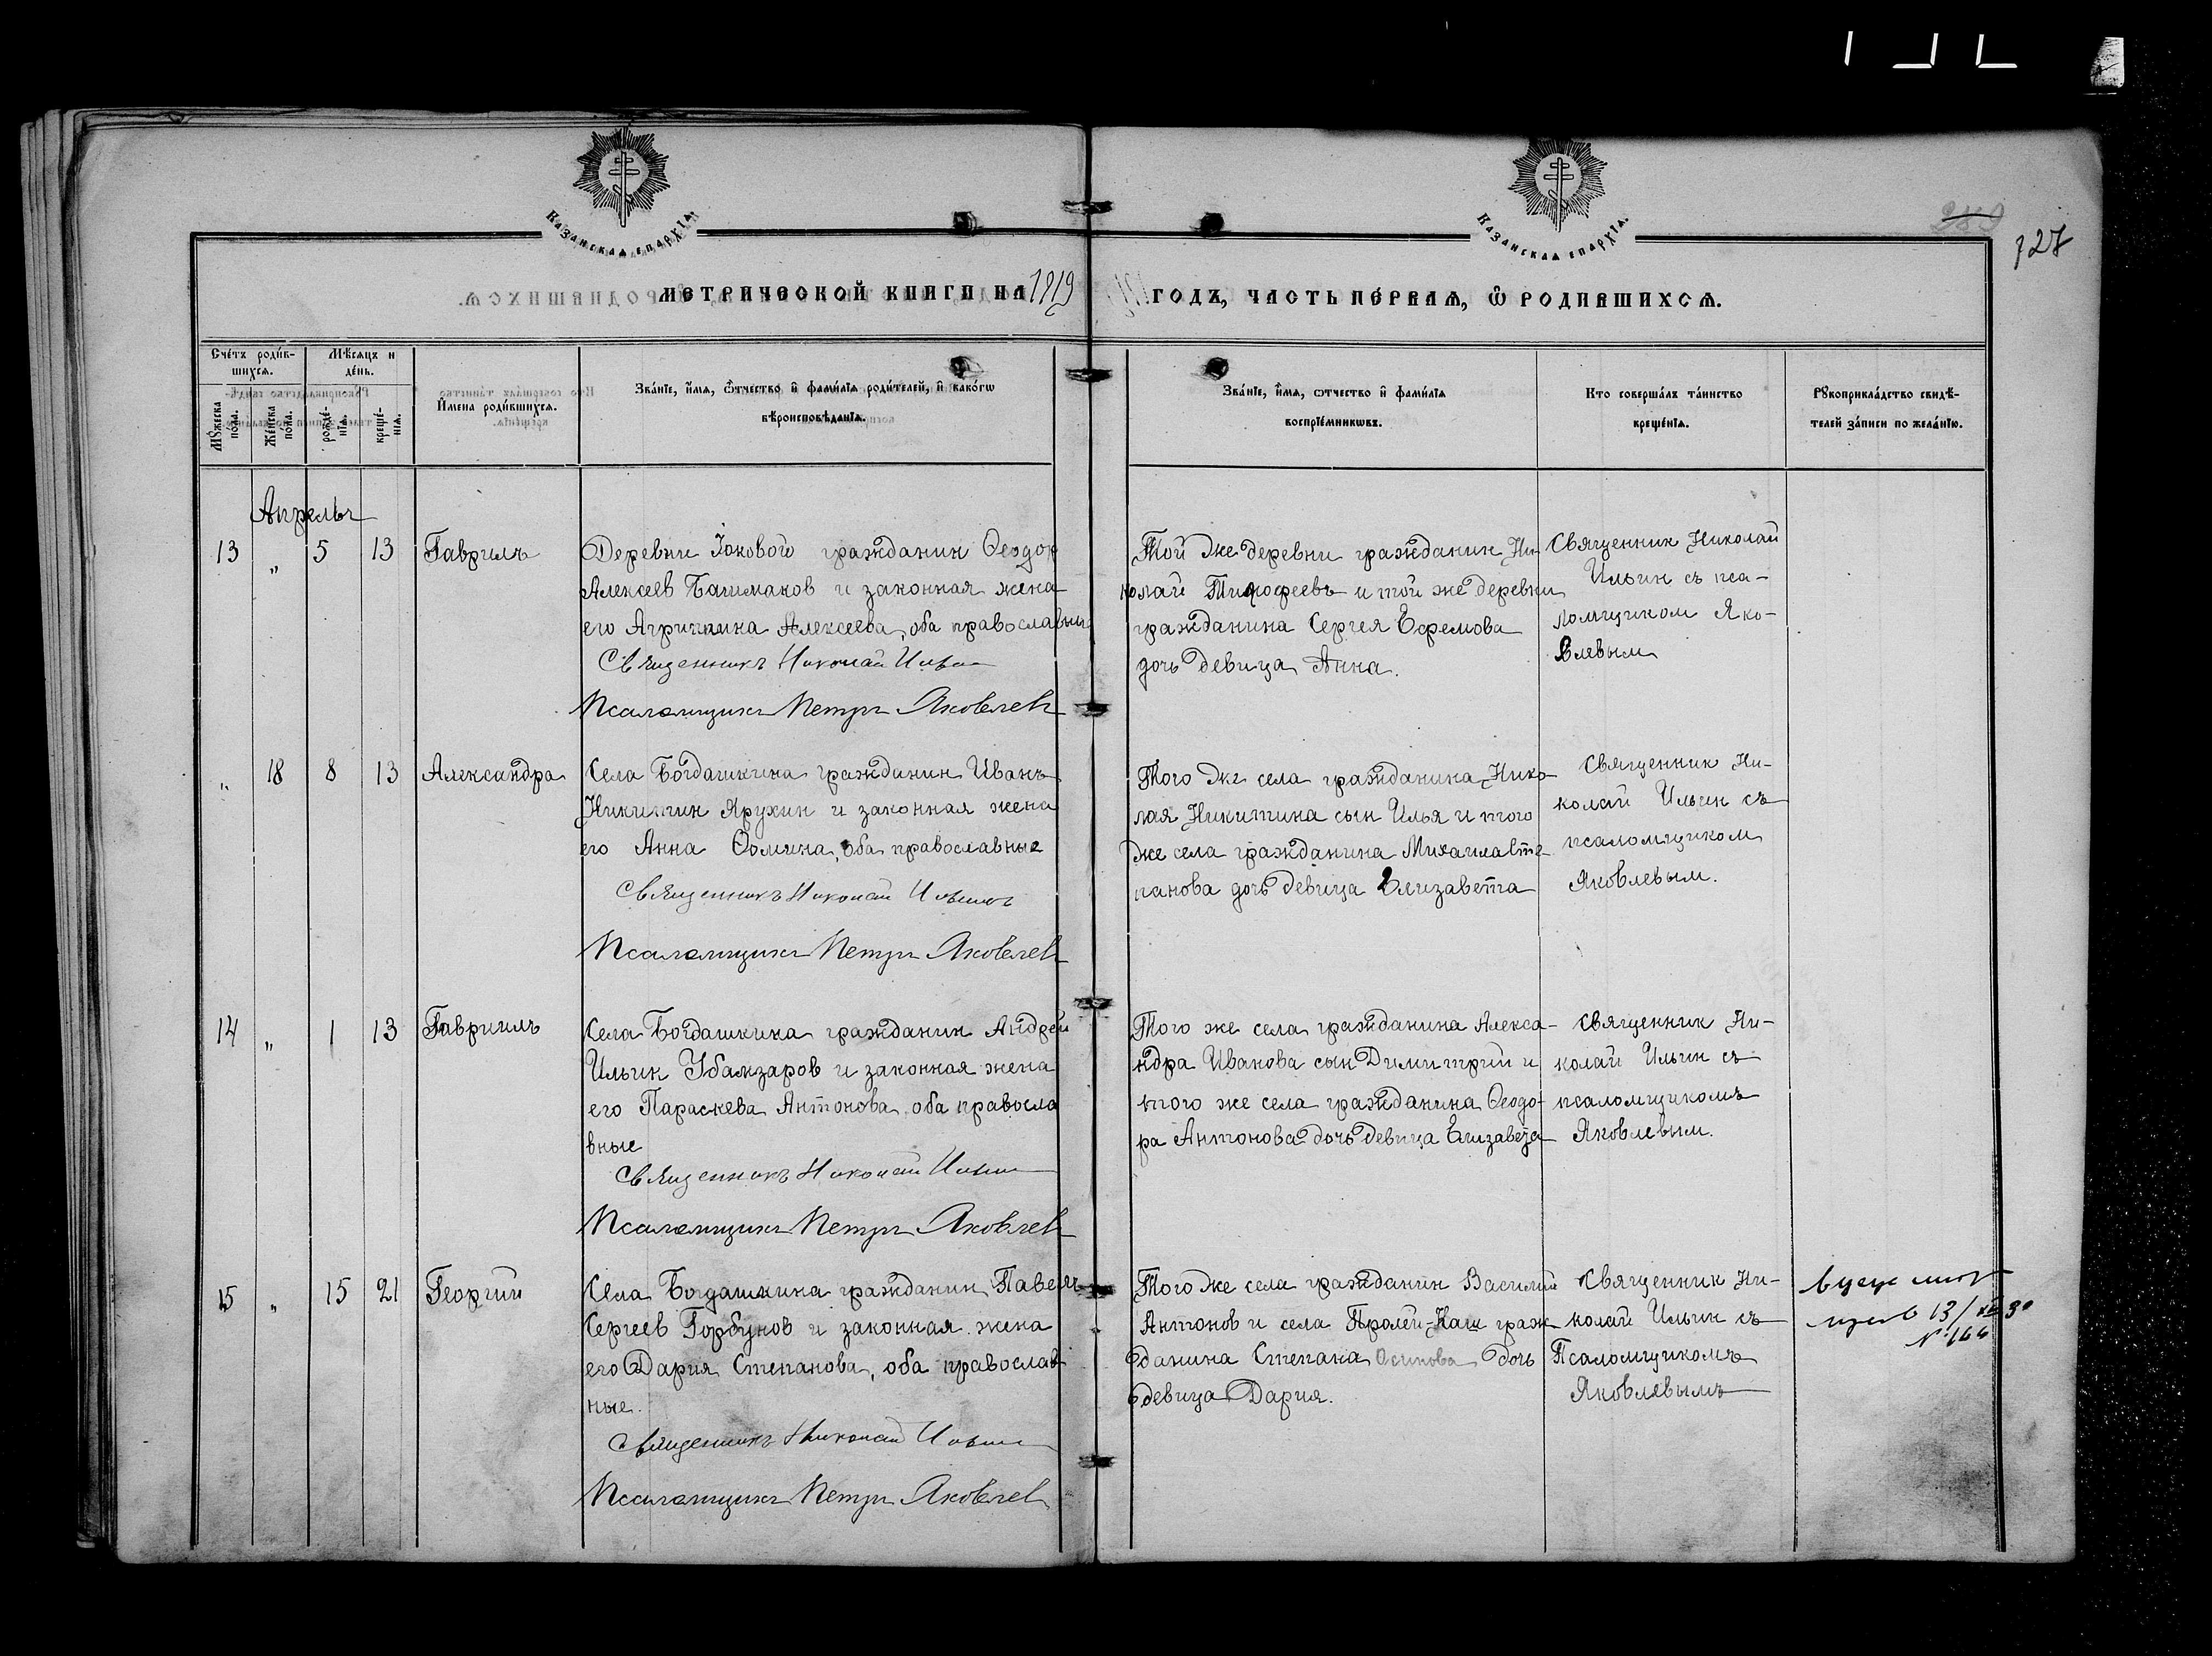 КАЗАНСКАѦ ЕПАРХІѦ.
КАЗАНСКАѦ ЕПАРХІѦ.
127
МЕТРИЧЕСКОЙ КНИГИ НА 1919 ГОДЪ, ЧАСТЬ ПЕ́РВАѦ, Ѽ РОДИВШИХСѦ.
Сче́тъ роди́в-
шихсѧ.
Мѣ́сѧцъ и
де́нь.
Мꙋ́жеска
по́ла.
Же́нска
по́ла.
рожде́-
нїѧ.
креще́-
нїѧ.
И҆мена роди́вшихсѧ.
Зва́нїе, и҆́мѧ, ѻ҆́тчество и҆ фами́лїѧ роди́телей, и҆ како́гѡ
вѣроисповѣ́данїѧ.
Зва́нїе, и҆́мѧ, ѻтчество и҆ фами́лїѧ
воспрїе́мникѡвъ.
Кто соверша́лъ та́инство
креще́нїѧ.
Рꙋкоприкла́дство свидѣ́-
телей за́писи по жела́нїю.
Апрель
13 „ 5 13 Гаврилъ
Деревни Ѳеодор
Алексеев Башмаков и законная жена
его Агриппина Алексеева, оба православные
Священникъ Николай Ильин
Псаломщикъ Петръ Яковлев
Той же деревни гражданин Ни-
колай Тимофеевъ и той же деревни
гражданина Сергея Ефремова
дочь девица Анна.
Священник Николай
Ильин съ пса-
ломщиком Яко-
влевым
„ 18 8 13 Александра
Села Богдашкина гражданин Иванъ
Никитин Ярухин и законная жена
его Анна Ѳомина, оба православные
Священникъ Николай Ильин
Псаломщикъ Петръ Яковлев
Того же села гражданина Нико-
лая Никитина сын Илья и того
же села гражданина Михаила Сте-
панова дочь девица Елизавета
Священник Ни-
колай Ильин съ
псаломщиком
Яковлевым.
14 „ 1 13 Гавриилъ
Села Богдашкина гражданин Андрей
Ильин и законная жена
его Параскева Антонова, оба правосла
вные
Священникъ Николай Ильин
Псаломщикъ Петръ Яковлев
Того же села гражданина Алекса-
ндра Иванова сын Димитрий и
того же села гражданина Ѳеодо-
ра Антонова дочь девица Елизавета
Священник Ни-
колай Ильин съ
псаломщикомъ
Яковлевым.
15 „ 15 21 Георгий
Села Богдашкина гражданин Павелъ
Сергеев Горбунов и законная жена
его Дария Степанова, оба православ
ные.
Священникъ Николай Ильин
Псаломщикъ Петръ Яковлев
Того же села гражданин Василий
Антонов и села Пролей-Каш граж-
данина Степана Осипова дочь
девица Дария.
Священник Ни-
колай Ильин съ
Псаломщикомъ
Яковлевымъ